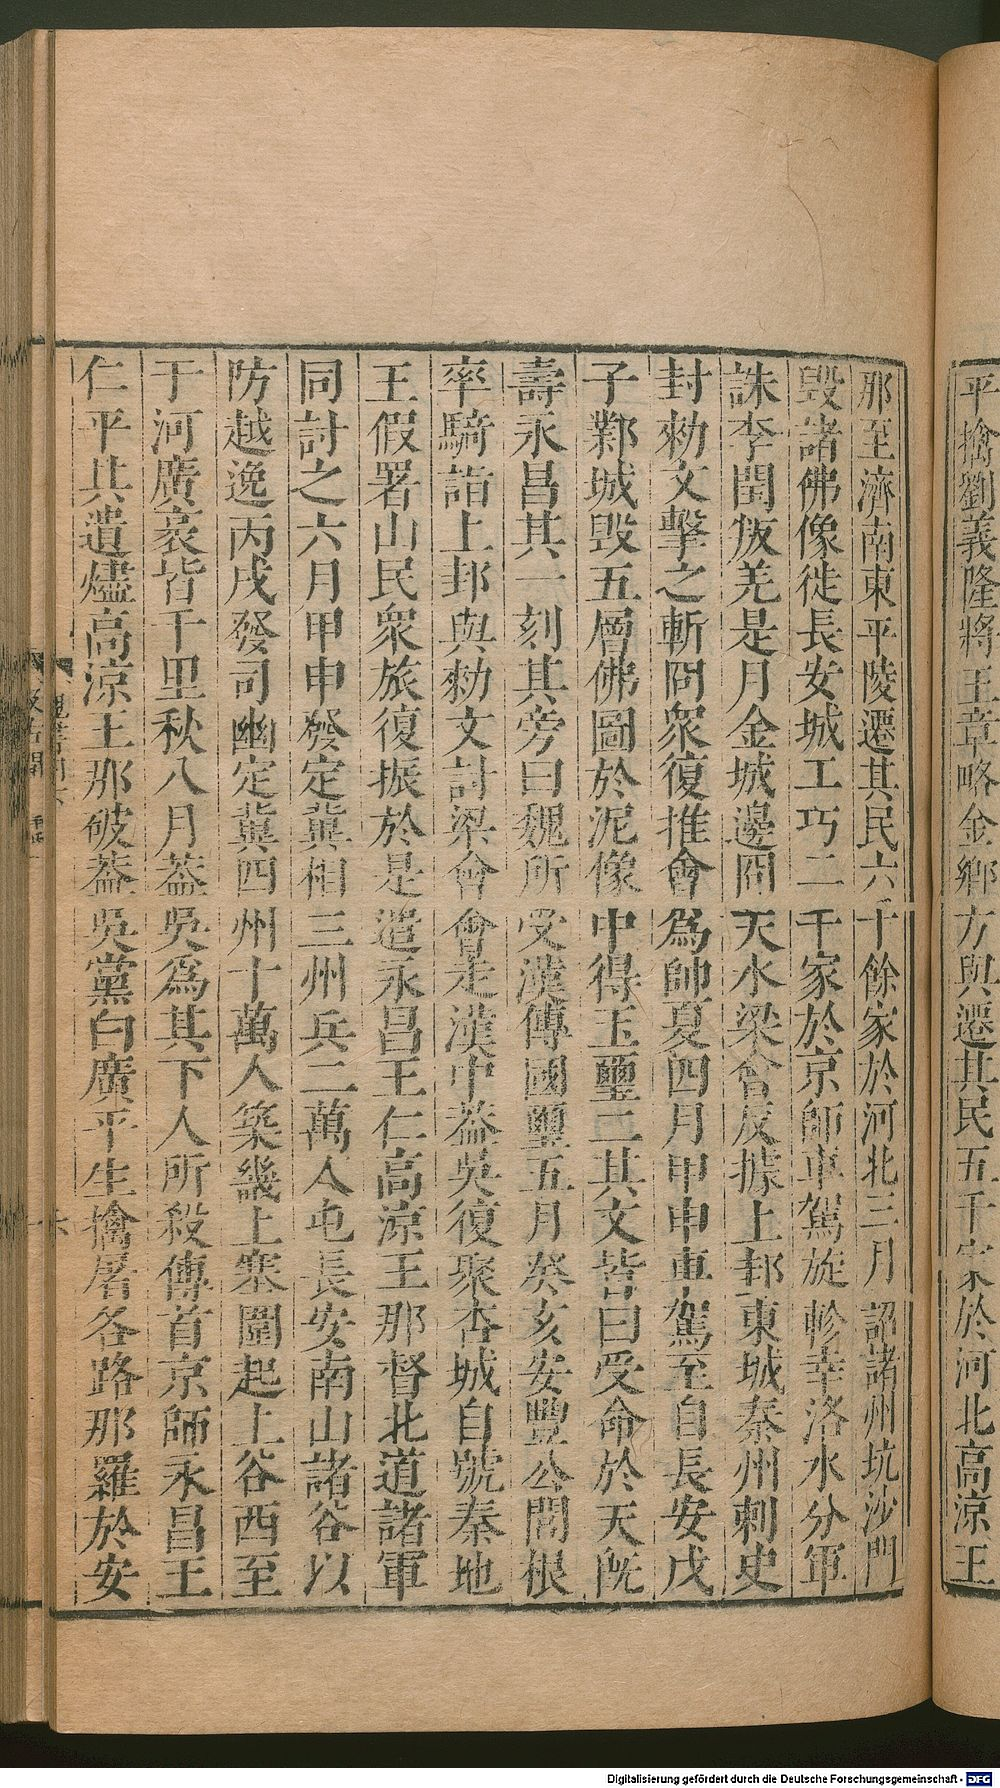 平擒劉義隆將王章略金鄉方與遷其民五千家於河北高涼王
那至濟南東平陵遷其民六千餘家於河北三月詔諸州坑沙門
毀諸佛像徙長安城工巧二千家於京師車駕旋軫幸洛水分軍
誅李閏叛羌是月金城邊冏天水梁會反據上邽東城秦州刺史
封勑文擊之斬冏衆復推會爲帥夏四月甲申車駕至自長安戊
子鄴城毀五層佛圖於泥像中得玉璽二其文皆曰受命於天旣
壽永昌其一刻其旁曰魏所受漢傳國璽五月癸亥安豐公閭根
率騎詣上邽與勑文討梁會會走漢中蓋吳復聚杏城自號秦地
王假署山民衆旅復振於是遣永昌王仁高涼王那督北道諸軍
同討之六月甲申發定冀相三州兵二萬人屯長安南山諸谷以
防越逸丙戌發司幽定冀四州十萬人築畿上塞圍起上谷西至
于河廣袤皆千里秋八月蓋吳爲其下人所殺傳首京師永昌王
仁平其遺燼高涼王那破蓋吳黨白廣平生擒屠各路那羅於安
六
Digitalisierung gefördert durch die Deutsche Forschungsgemeinschaft - DFG